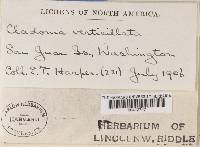 LICHENS OF NORTH AMERICA.
Cladonia verticillata
San Juan Is., Washington
Coll. E. T. Harper. (221) July 1906
HERBARIUM OF
LINCOLN W. RIDDLE